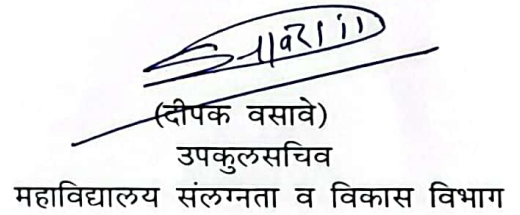 (दीपक वसावे)
उपकुलसचिव
महाविद्यालय संलग्नता व विकास विभाग